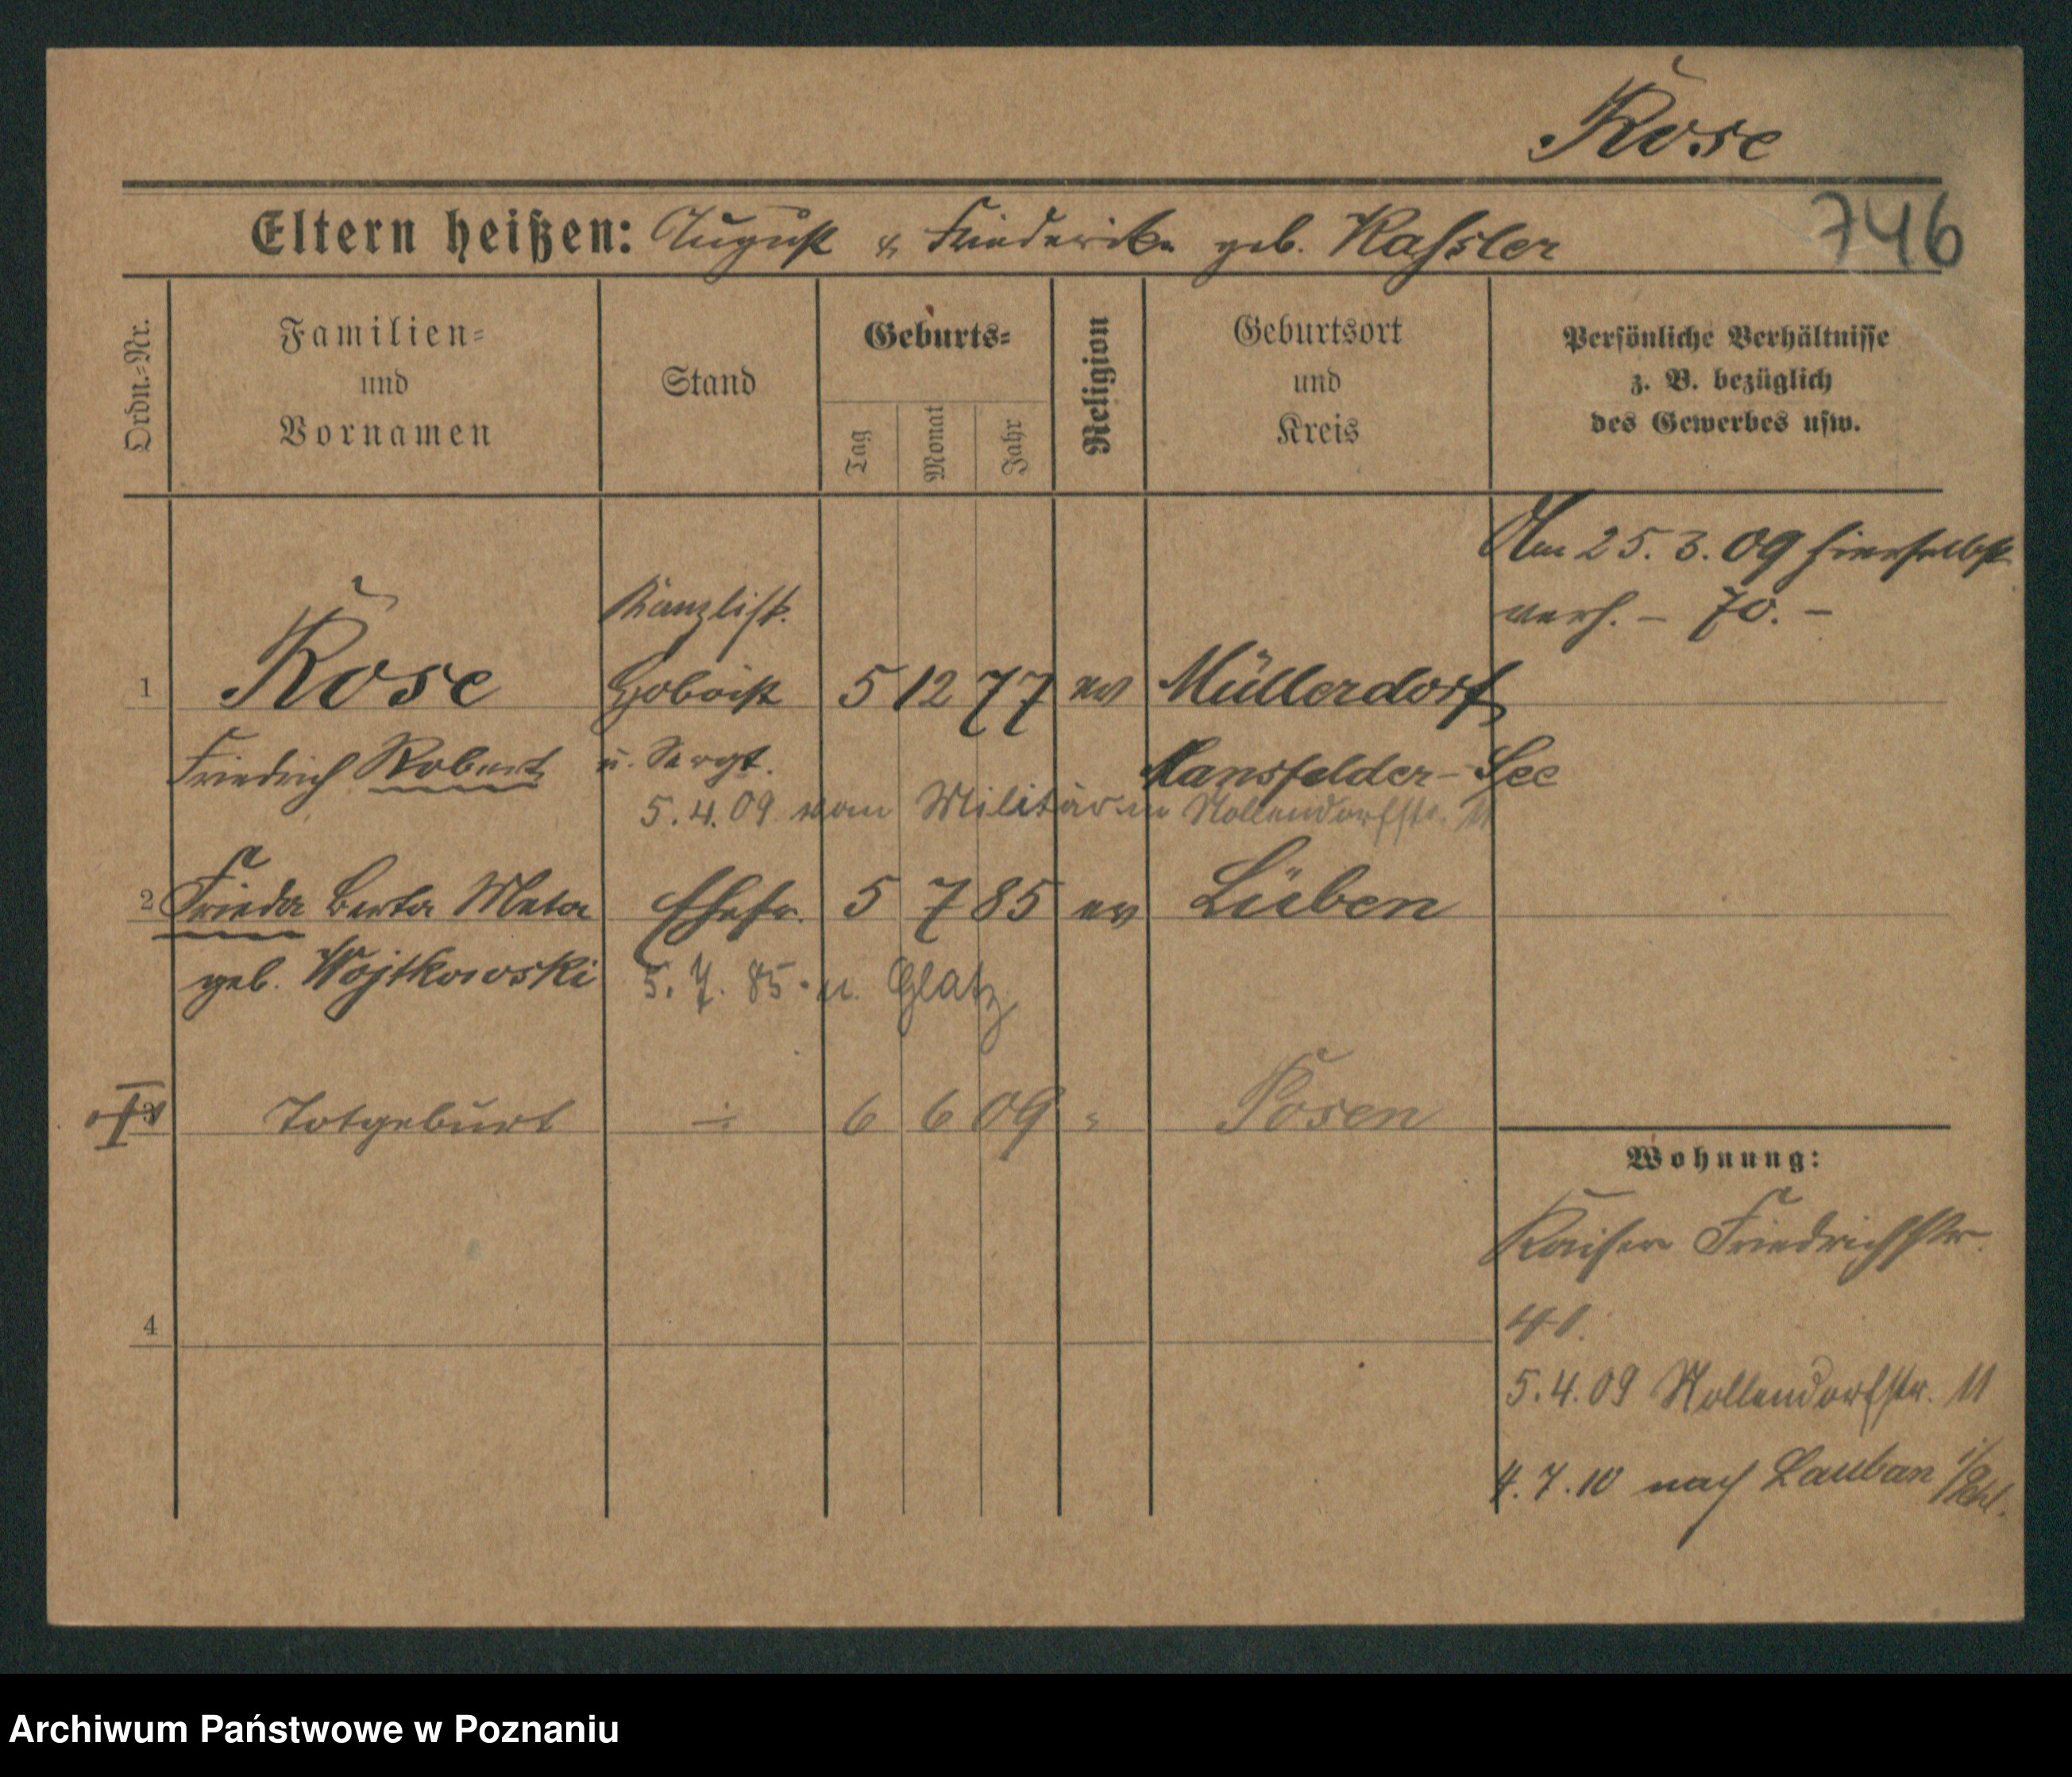 Rose
746
Eltern heißen: August & Friederike geb. Kassler
Ordn.-Nr.
Familien-
und
Vornamen
Stand
Geburts-
Tag
Monat
Jahr
Religion
Geburtsort
und
Kreis
Persönliche Verhältnisse
z. B. bezüglich
des Gewerbes usw.
Am 25.3.09 hierselbst
verh. – 70. –
Kanzlist.
1 Rose Hoboist 5 12 77 ev Müllerdorf
Friedrich Robert u. Sergt. Mansfelder-See
5.4.09 vom Militär n Nollendorfstr. 11
2 Frieda Berta Meta Ehefr. 5 7 85 ev Lüben
geb. Wojtkowski 5.7.85. n. Glatz
3 Totgeburt ÷ 6 6 09 " Posen
4
Wohnung:
Kaiser Friedrichstr.
41.
5.4.09 Nollendorfstr. 11
4.7.10 nach Lauban i/Schl.
Archiwum Państwowe w Poznaniu